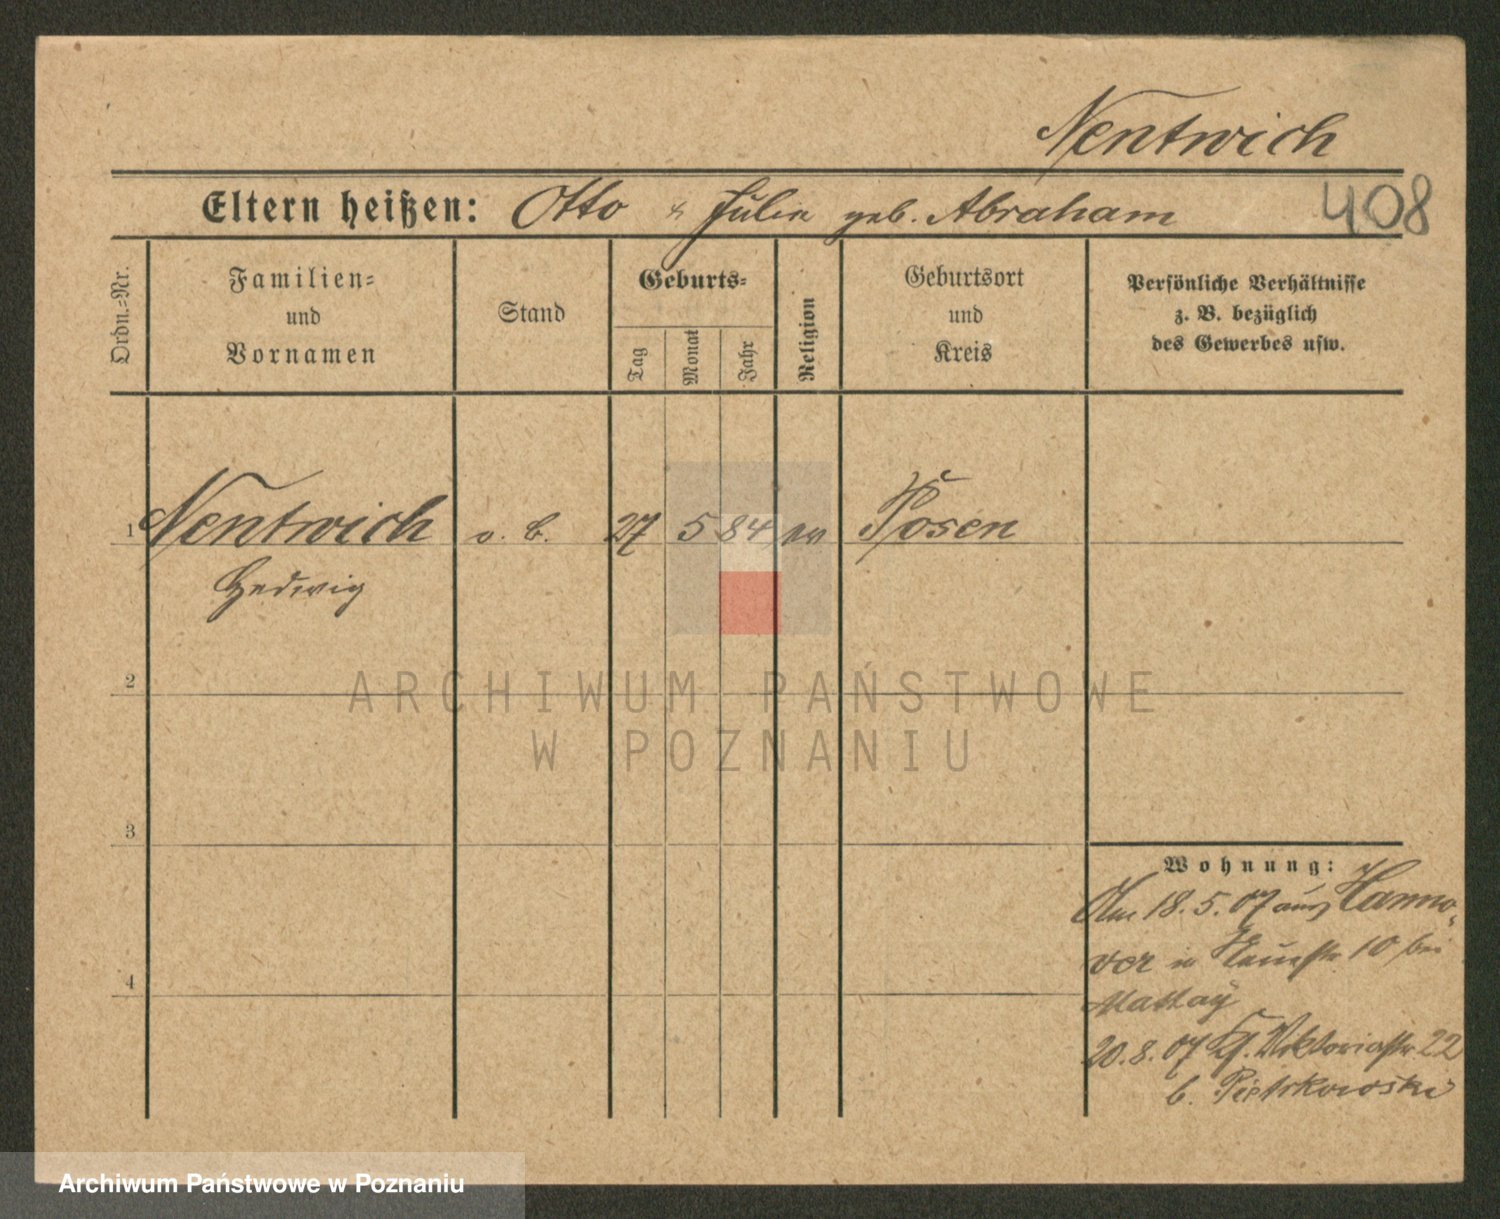 Nentwich
Eltern heißen: Otto & Julie geb. Abraham
408
Ordn.-Nr.
Familien-
und
Vornamen
Stand
Geburts-
Tag
Monat
Jahr
Religion
Geburtsort
und
Kreis
Persönliche Verhältnisse
z. B. bezüglich
des Gewerbes usw.
1 Nentwich o. B. 27 5 84 ev Posen
Hedwig
2
3
4
Wohnung:
Am 18.5.07 aus Hanno-
ver in Neuestr 10 bei
Mattaÿ
20.8.07 Viktoriastr. 22
b. Pietrkowski
ARCHIWUM PAŃSTWOWE
W POZNANIU
Archiwum Państwowe w Poznaniu